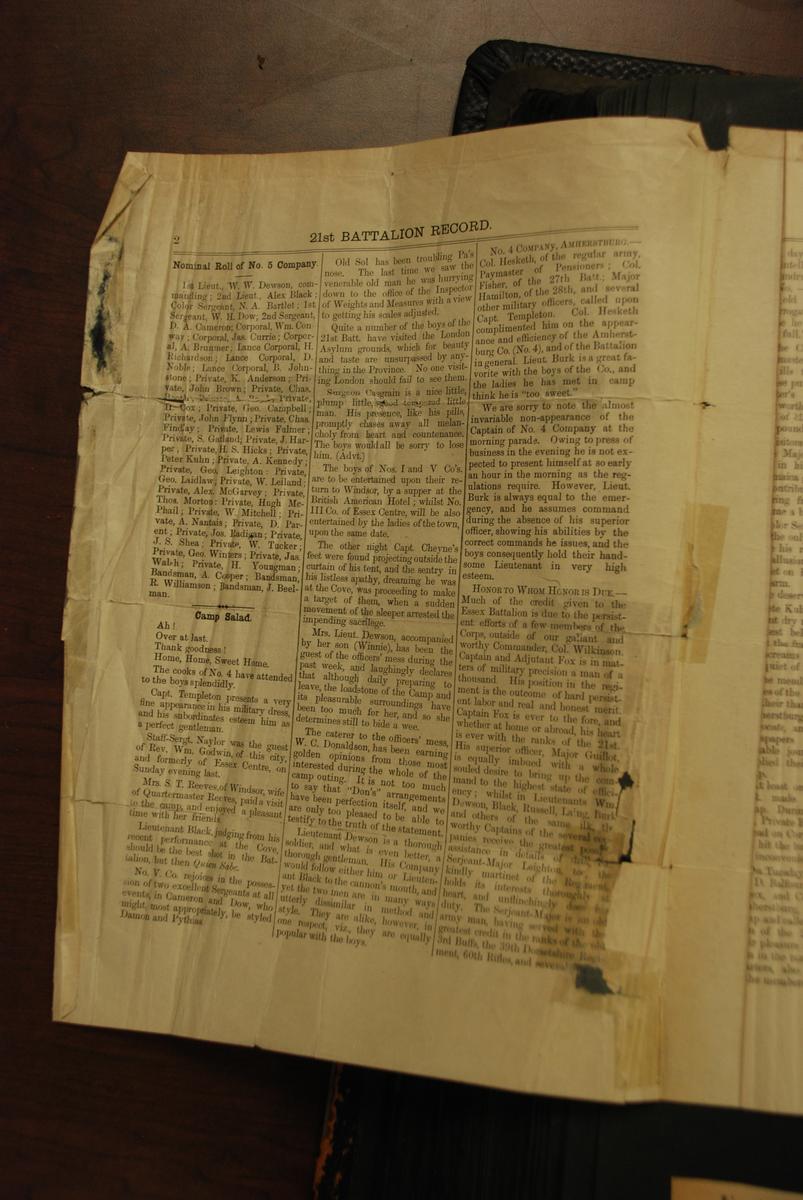 2
21st BATTALION RECORD.
Nominal Roll of No. 5 Company.
1st Lieut., W. W. Dewson, com-
manding; 2nd Lieut., Alex Black;
Color Sergeant, N. A. Bartlet; 1st
Sergeant, W. H. Dow; 2nd Sergeant,
D. A. Cameron; Corporal, Wm. Con
way; Corporal, Jas. Currie; Corpor-
al, A. Brunner; Lance Corporal, H.
Richardson; Lance Corporal, D.
Noble; Lance Corporal, B. John-
stone; Private, K. Anderson; Pri-
vate, John Brown; Private, Chas.
Private,
Cox; Private, Geo. Campbell;
Private, John Flynn; Private, Chas.
Findlay; Private, Lewis Fulmer;
Private, S. Gatland; Private, J. Har-
per; Private, H. S. Hicks; Private,
Peter Kuhn; Private, A. Kennedy;
Private, Geo. Leighton; Private,
Geo. Laidlaw; Private, W. Leiland;
Private, Alex. McGarvey; Private,
Thos. Morton; Private, Hugh Mc-
Phail; Private, W. Mitchell; Pri-
vate, A. Nantais; Private, D. Par-
ent; Private, Jos. Radigan; Private,
J. S. Shea; Private, W. Tucker;
Private, Geo. Winters; Private, Jas.
Walsh; Private, H. Youngman;
Bandsman, A. Cooper; Bandsman,
R. Williamson; Bandsman, J. Beel-
man.
Camp Salad.
Ah!
Over at last.
Thank goodness!
Home, Home, Sweet Home.
The cooks of No. 4 have attended
to the boys splendidly.
Capt. Templeton presents a very
fine appearance in his military dress,
and his subordinates esteem him as
a perfect gentleman.
Staff-Sergt. Naylor was the guest
of Rev. Wm. Godwin, of this city,
and formerly of Essex Centre, on
Sunday evening last.
Mrs. S. T. Reeves, of Windsor, wife
of Quartermaster Reeves, paid a visit
to the camp, and enjoyed a pleasant
time with her friends.
Lieutenant Black, judging from his
recent performance at the Cove,
should be the best shot in the Bat-
talion, but then Quien Sabe.
No. V. Co. rejoices in the posses-
sion of two excellent Sergeants at all
events, in Cameron and Dow, who
might, most appropriately, be styled
Damon and Pythias.
Old Sol has been troubling Pa's
nose. The last time we saw the
venerable old man he was hurrying
down to the office of the Inspector
of Weights and Measures with a view
to getting his scales adjusted.
Quite a number of the boys of the
21st Batt. have visited the London
Asylum grounds, which for beauty
and taste are unsurpassed by any-
thing in the Province. No one visit-
ing London should fail to see them.
Surgeon Casgrain is a nice little,
plump little, good tempered little
man. His presence, like his pills,
promptly chases away all melan-
choly from heart and countenance.
The boys would all be sorry to lose
him. (Advt.)
The boys of Nos. I and V Co's.
are to be entertained upon their re-
turn to Windsor, by a supper at the
British American Hotel; whilst No.
III Co. of Essex Centre, will be also
entertained by the ladies of the town,
upon the same date.
The other night Capt. Cheyne's
feet were found projecting outside the
curtain of his tent, and the sentry in
his listless apathy, dreaming he was
at the Cove, was proceeding to make
a target of them, when a sudden
movement of the sleeper arrested the
impending sacrilege.
Mrs. Lieut. Dewson, accompanied
by her son (Winnie), has been the
guest of the officers' mess during the
past week, and laughingly declares
that although daily preparing to
leave, the loadstone of the Camp and
its pleasurable surroundings have
been too much for her, and so she
determines still to bide a wee.
The caterer to the officers' mess,
W. C. Donaldson, has been earning
golden opinions from those most
interested during the whole of the
camp outing. It is not too much
to say that "Don's" arrangements
have been perfection itself, and we
are only too pleased to be able to
testify to the truth of the statement.
Lieutenant Dewson is a thorough
soldier, and what is even better, a
thorough gentleman. His Company
would follow either him or Lieuten-
ant Black to the cannon's mouth, and
yet the two men are in many ways
utterly dissimilar in method and
style. They are alike, however, in
one respect, viz., they are equally
popular with the boys.
No. 4 Company, Amherstburg.—
Col. Hesketh, of the regular army,
Paymaster of Pensioners; Col.
Fisher, of the 27th Batt.; Major
Hamilton, of the 28th, and several
other military officers, called upon
Capt. Templeton. Col. Hesketh
complimented him on the appear-
ance and efficiency of the Amherst-
burg Co. (No. 4), and of the Battalion
in general. Lieut. Burk is a great fa-
vorite with the boys of the Co., and
the ladies he has met in camp
think he is "too sweet."
We are sorry to note the almost
invariable non-appearance of the
Captain of No. 4 Company at the
morning parade. Owing to press of
business in the evening he is not ex-
pected to present himself at so early
an hour in the morning as the reg-
ulations require. However, Lieut.
Burk is always equal to the emer-
gency, and he assumes command
during the absence of his superior
officer, showing his abilities by the
correct commands he issues, and the
boys consequently hold their hand-
some Lieutenant in very high
esteem.
Honor to Whom Honor is Due.—
Much of the credit given to the
Essex Battalion is due to the persist-
ent efforts of a few members of the
Corps, outside of our gallant and
worthy Commander, Col. Wilkinson.
Captain and Adjutant Fox is in mat-
ters of military precision a man of a
thousand. His position in the regi-
ment is the outcome of hard persist-
ent labor and real and honest merit.
Captain Fox is ever to the fore, and
whether at home or abroad, his heart
is ever with the ranks of the 21st.
His superior officer, Major Guillot,
is equally imbued with a whole
souled desire to bring up the com
mand to the highest state of effici-
ency; whilst in Lieutenants Wm.
Dewson, Black, Russell, Laing, Burk
and others of the same ilk, the
worthy Captains of the several com
panies receive the greatest
assistance in details of
Serjeant-Major Leighton, to the
kindly martinet of the Regiment,
holds its interests thoroughly at
heart, and unflinchingly does his
duty. The Serjeant-Major is an old
army man, having served with the
greatest credit in the ranks of the old
3rd Buffs, the 39th Dorsetshire Regi-
ment, 60th Rifles, and several